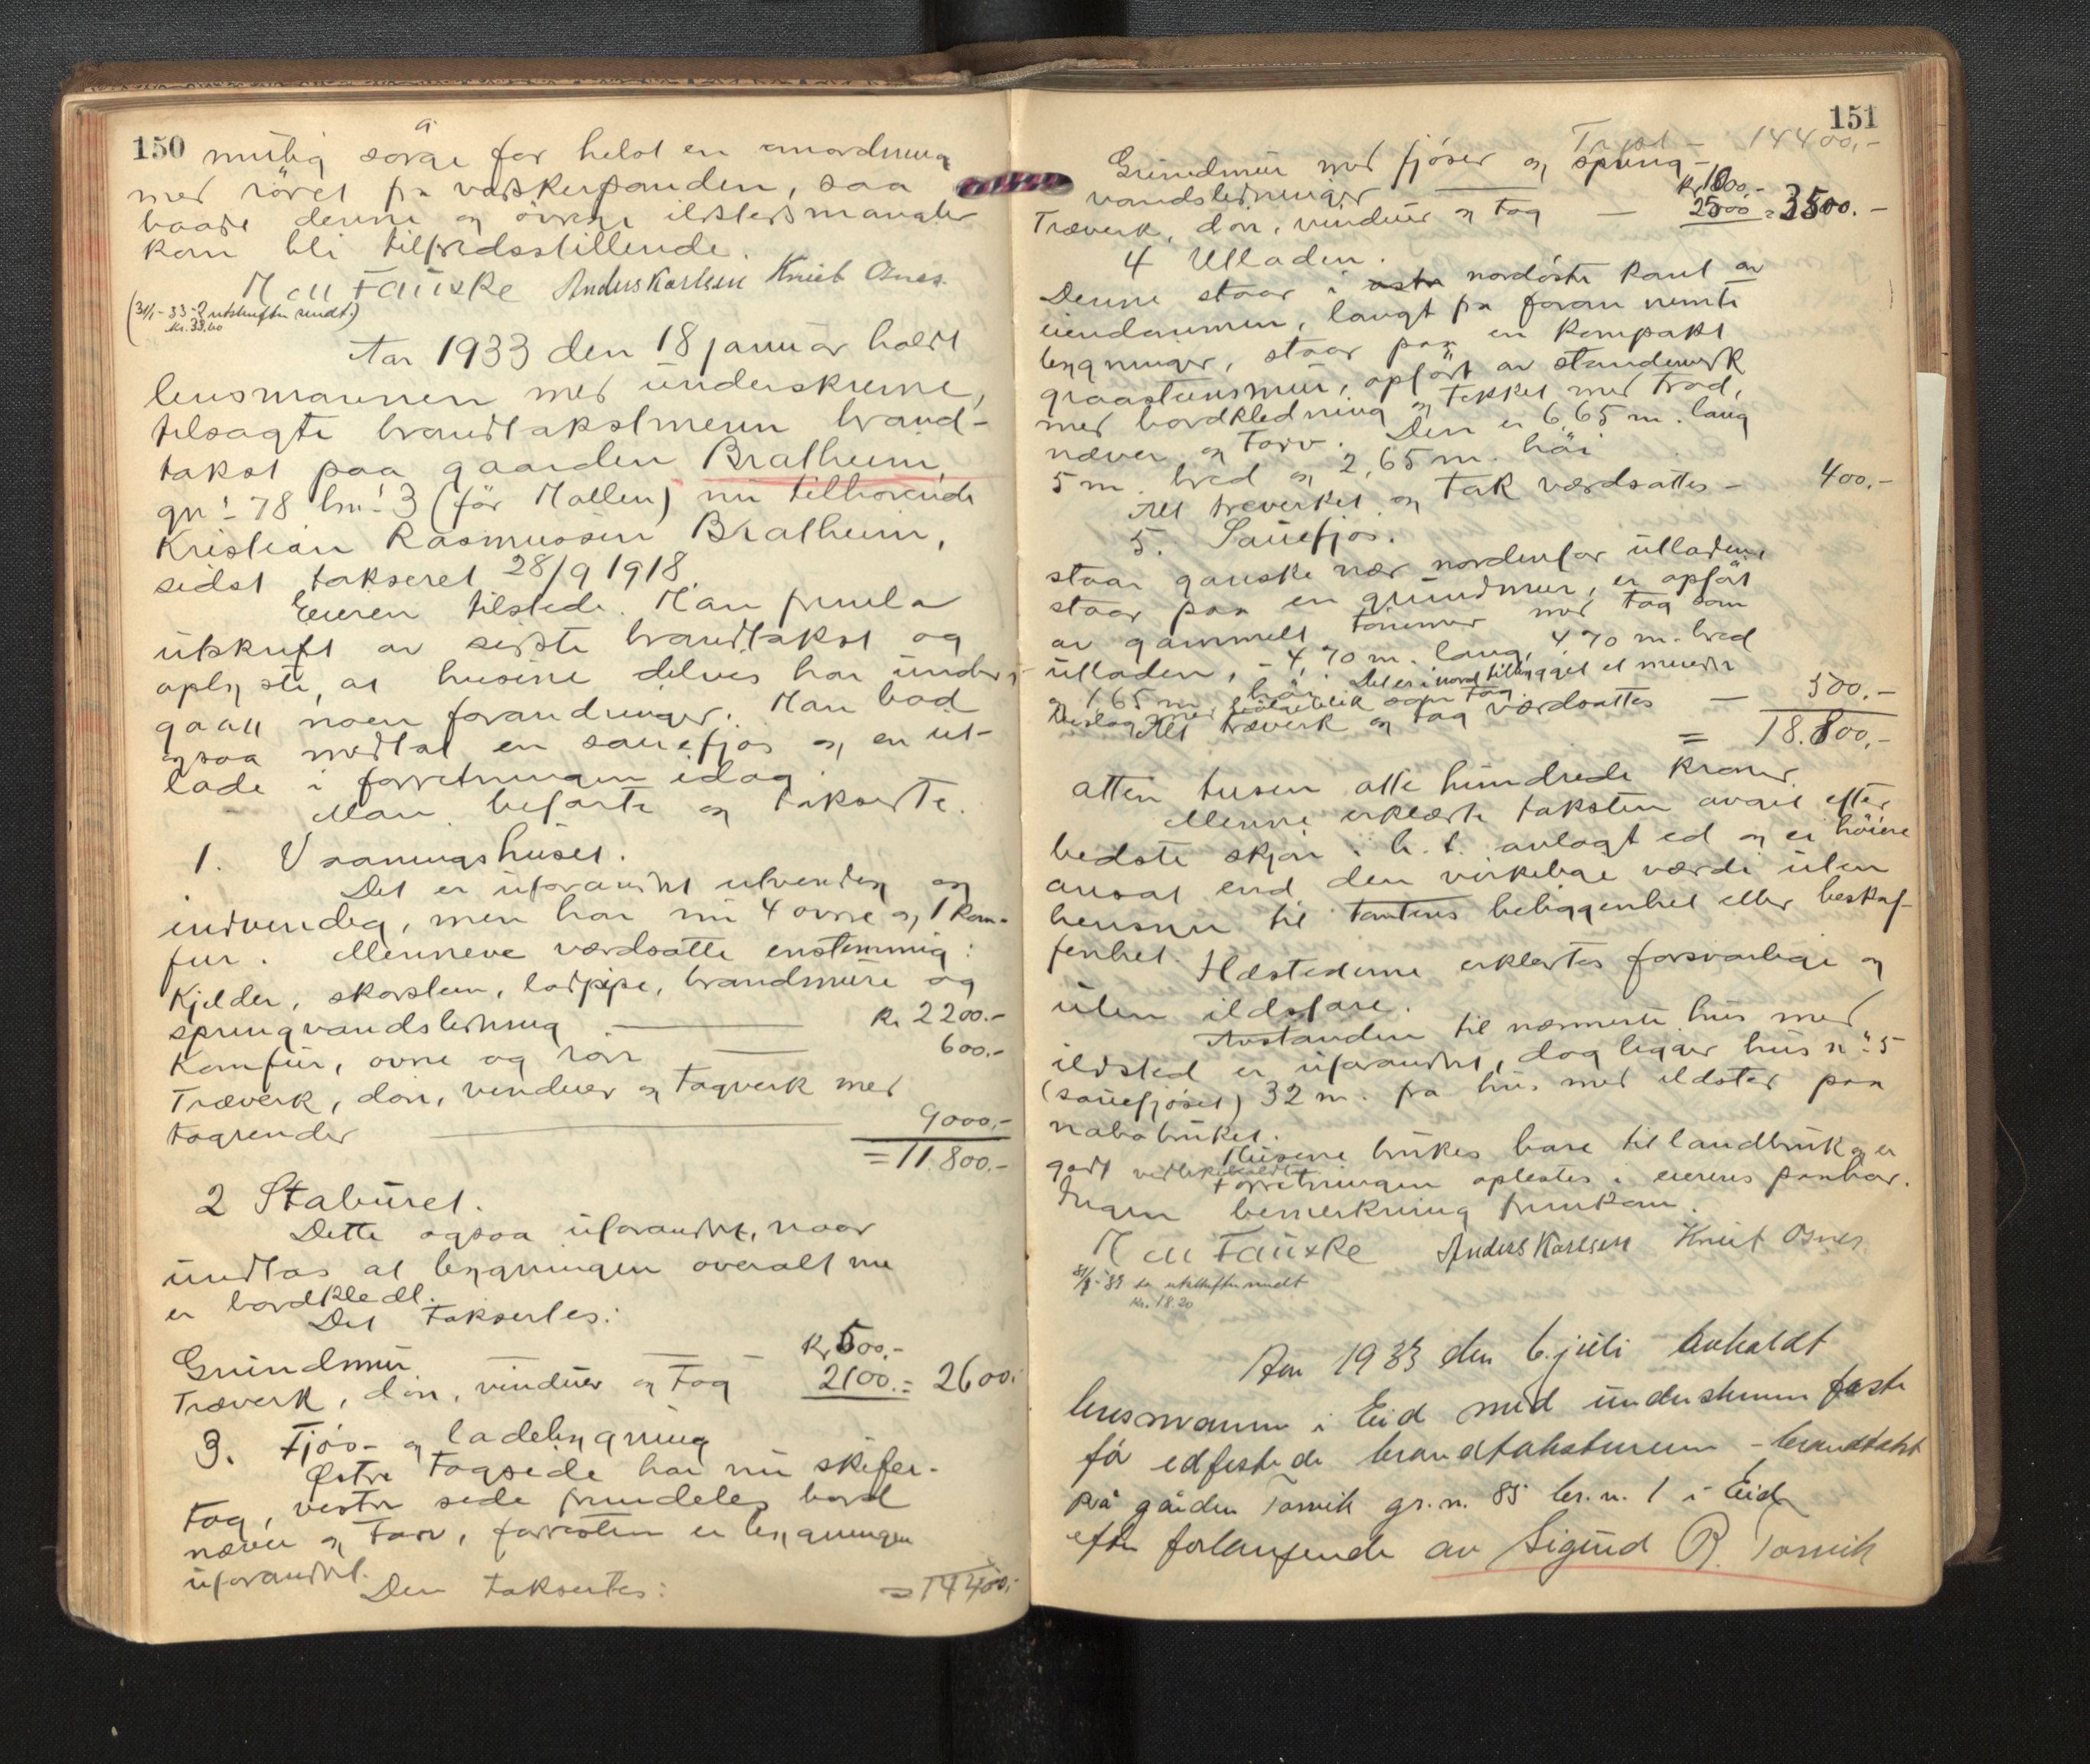 150
mulig sørge for helst en anordning
med röret fra vaskepanden, saa
baade denne og øvrige ildstedsmangler
kan bli tilfredsstillende.
M M Fauske Anders Karlsen Knut Osnes
(31/1-33-2 utskrifter sendt.)
kr. 33.60
Aar 1933 den 18 januar holdt
lensmannen med underskrevne,
tilsagte brandtakstmenn brand-
takst paa gaarden Bratheim,
gn: 78 bn: 3 (för Mollen) nu tilhörende
Kristian Rasmussen Bratheim,
sidst takseret 28/9 1918.
Eieren tilstede. Man fremla
utskrift av sidste brandtakst og
oplyste, at husene delvis har under-
gaatt noen forandringer. Man bad
ogsaa medtat en sauefjøs og en ut-
lade i forretningen idag.
Man befarte og takserte.
1. Vaaningshuset.
Det er uforandret utvendig og
indvendig, men har nu 4 ovne og 1 kom-
fur. Mennene værdsatte enstemmig:
Kjelder, skorsten, lodpipe, brandmure og
springvandsledning — kr 2200.-
Komfur, ovne og rör — 600.-
Træverk, dör, vinduer og tagverk med
tagrender — 9000,-
= 11.800.-
2 Staburet.
Dette ogsaa uforandret, naar
undtas at bygningen overalt nu
er bordkledt.
Det taksertes:
Grundmur — kr 500.-
Træverk, dör, vinduer og tag 2100.- = 2600.-
3. Fjös- og ladebygning
Østre tagside har nu skifer-
tag, vestre side fremdeles bord
næver og torv, forresten er bygningen
uforandret.
Den taksertes: = 14400,-
151
Trpst - 14400,-
Grundmur med fjöser og spring-
vandsledninger — kr 1000.-
Træverk, dör, vinduer og tag — 2500 = 3500.-
4 Utladen.
Denne staar i östr nordöstre kant av
eiendommen, langt fra foran nevnte
bygninger, staar paa en kompakt
graastensmur, opfört av standerverk
med bordkledning og tekket med trod,
næver og torv. Den er 6,65 m. lang
5 m. bred og 2,65 m. höi
Alt treverket og tak værdsattes - 400,-
5. Sauefjös.
staar ganske nær nordenfor utladen,
staar paa en grundmur, er opfört
av gammelt tömmer med tag som
utladen, - 4,70 m. lang, 4,70 m. bred
og 1,65 m. höi. Det er i nord tilbygget et mindre
beslag med bølgeblik som tag.
Alt træverk og tag værdsattes — 500.-
= 18.800,-
atten tusen atte hundrede kroner.
Mennene erklærte taksten avgit efter
bedste skjön i h. t. avlagt ed og ei höiere
ansat end den virkelige værdi uten
hensyn til tomtens beliggenhet eller beskaf-
fenhet. Ildstederne erklertes forsvarlige og
uten ildsfare.
Avstanden til nærmeste hus med
ildsted er uforandret, dog ligger hus n: 5
(sauefjöset) 32 m. fra hus med ildsted paa
nabobruket.
Husene brukes bare til landbruk og er
godt vedlikeholdte.
Forretningen oplestes i eierens paahör.
Ingen bemerkning fremkom.
M M Fauske Anders Karlsen Knut Osnes
31/1-33 to utskrifter sendt
kr. 18.20
Aar 1933 den 6. juli avholdt
lensmann i Eid med underskrevne faste
for edfestede brandtakstmenn - brandtakst
på gården Torvik gr.n. 85 br.n. 1 i Eid
efter forlangende av Sigurd R. Torvik